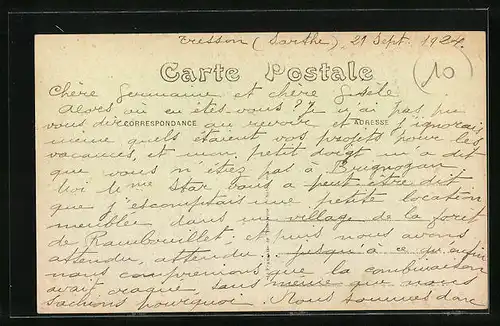 Tresson (Sarthe) 21 Sept. 1924.
Carte Postale
10
Chère Germaine et chère Gisèle
Alors où en êtes-vous? Je n'ai pas pu
vous dire au revoir et j'ignorais
CORRESPONDANCE ADRESSE
même quels étaient vos projets pour les
vacances, et mon petit doigt m'a dit
que vous n'étiez pas à Brignogan
a peut être dit
que j'escomptais une petite location
meublée dans un village de la forêt
de Rambouillet; et puis nous avons
attendu, attendu jusqu'à ce qu'enfin
nous comprenions que la combinaison
avait craqué sans même que nous
sachions pourquoi. Nous sommes donc